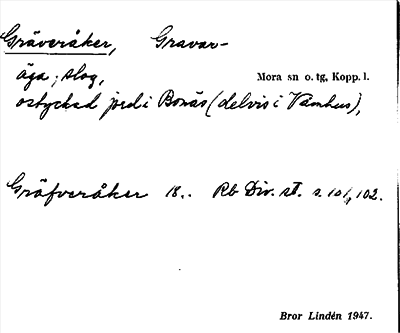 Gräveråker, Gravar-
äga; slog,
Mora sn o. tg, Kopp. l.
ostyckad jord i Bonäs (delvis i Våmhus),
Gräfveråker 18.. Rb Div. st. s. 101, 102.
Bror Lindén 1947.